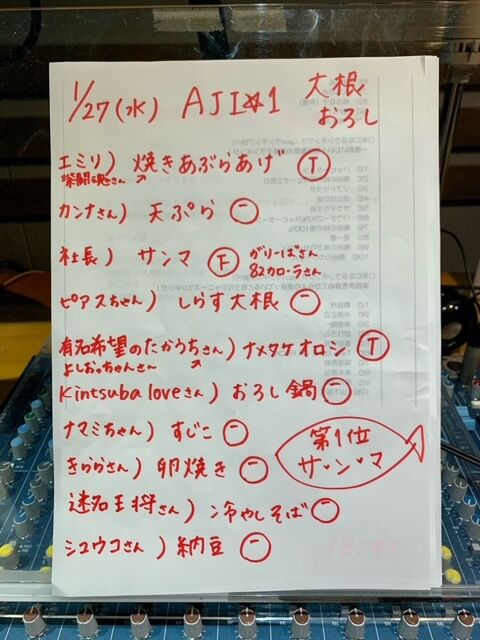 1/27(水) AJI☆1 大根
おろし
エミリ) 焼きあぶらあげ T
さん↗
カンナさん) 天ぷら 一
社長) サンマ 下 がりーばさん
82カローラさん
ピアスちゃん) しらす大根 一
有名希望のたかうちさん) ナメタケオロシ T
よしおっちゃんさん↗
Kintsuba loveさん) おろし鍋 一
ナマミちゃん) すじこ 一
きららさん) 卵焼き 一
第1位
サ・ン・マ
迷名王将さん) 冷やしそば 一
シュウコさん) 納豆 一